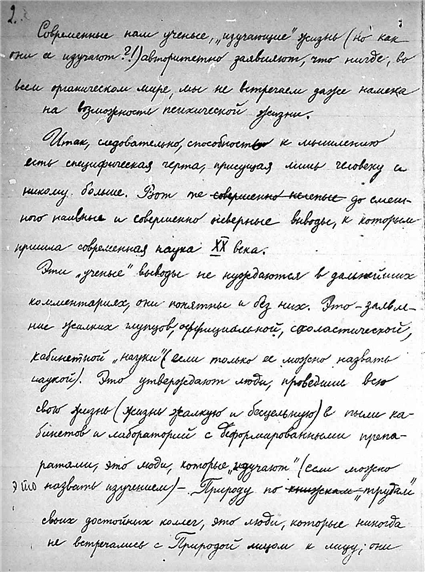 2.
Современные нам ученые, „изучающие" жизнь (но как
они ее изучают?!) авторитетно заявляют, что нигде, во
всем органическом мире, мы не встречаем даже намека
на возможность психической жизни.
Итак, следовательно, способность к мышлению
есть специфическая черта, присущая лишь человеку и
никому больше. Вот те совершенно нелепые до смеш-
ного наивные и совершенно неверные выводы, к которым
пришла современная наука XX века.
Эти „ученые" выводы не нуждаются в дальнейших
комментариях, они понятны и без них. Это - заявле-
ние жалких глупцов, официальной, схоластической,
кабинетной „науки" (если только ее можно назвать
наукой). Это утверждают люди, проведшие всю
свою жизнь (жизнь жалкую и бесцельную) в пыли ка-
бинетов и лабораторий с деформированными препа-
ратами, это люди, которые „изучают" (если можно
это назвать изучением) - Природу по книжкам „трудам"
своих достойных коллег, это люди, которые никогда
не встречались с Природой лицом к лицу; они